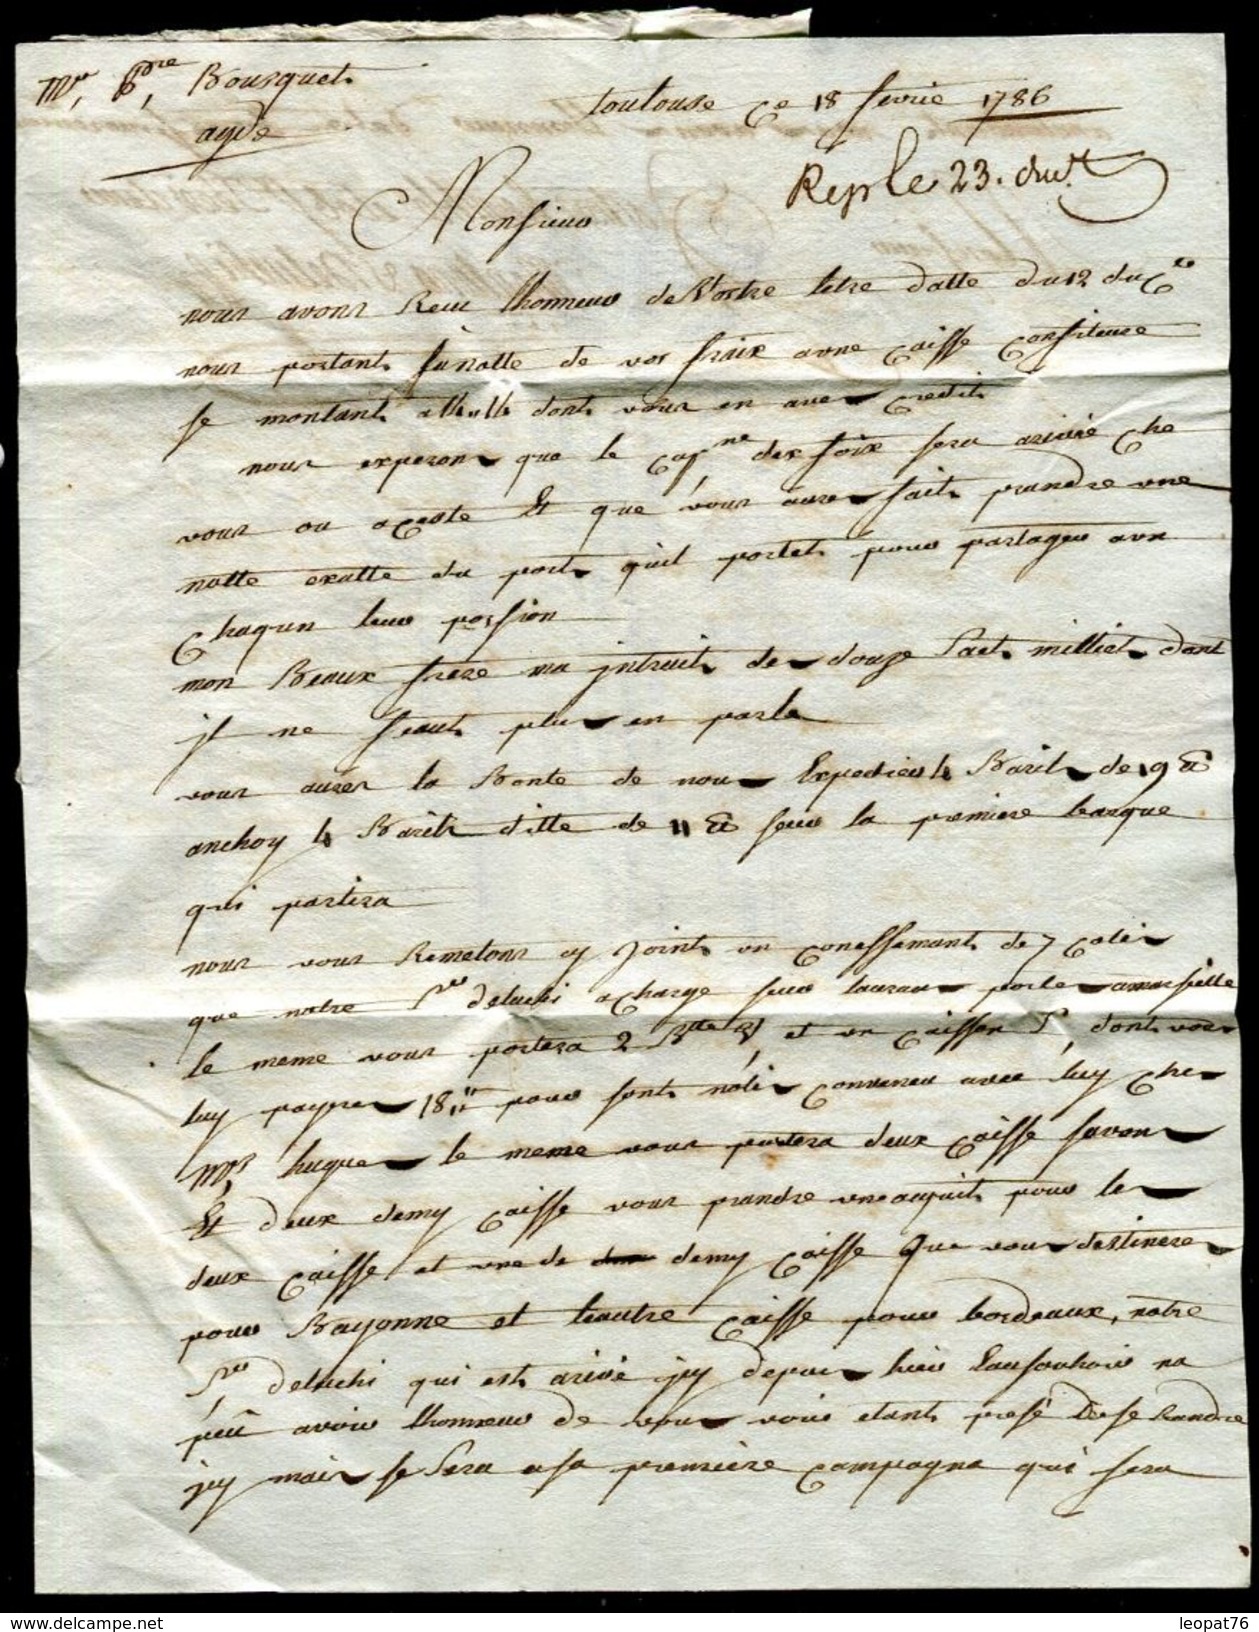 Mr, Pre, Bousquet
agde
toulouse Ce 18 fevrie 1786
Rep le 23. dud.t
Monsieur
nous avons Recu lhonneur de Vostre letre datte du 12 du Ct
nous portant la notte de vos fraix a une Caisse Confiteure
se montant dont vous en aves Credit
nous experons que le Cap.ne des foix sera arivée Che
vous ou a Ceste Et que vous aures fait prandre une
notte exatte du port quil portet pour partager aux
Chaqun leur possion
mon Beaux frere ma jntruit des douze Sact milliet dont
jl ne feaut plus en parle
vous aures la Bonte de nous Expedier 4 Barils de 19 ℔
anchoy 4 Barils ditte de 11 ℔ seur la premiere barque
qui partira
nous vous Remetons cy Joint un Conessemant de 7 Colis
que notre Sr deluchi a Charge seur laurans porte a marseille
le meme vous portera 2 Btte et un Caisson S, dont vous
luy payres 18 ₶ pour font notis Conveneu avec luy Ches
Mr, hugues le meme vous portera deux Caisse Savons
Et deux demy Caisse vous prandre une aquit pour les
deux Caisse et une de demy Caisse Que vous destineres
pour Bayonne et leautre Caisse pour bordeaux, notre
Sr, deluchi qui est arivé jcy depuis hier Lausouhoir na
peü avoir lhonneur de vous voir etant presé de se Randre
jcy mais se Sera a sa premiere Campagne qui sera
leopat76